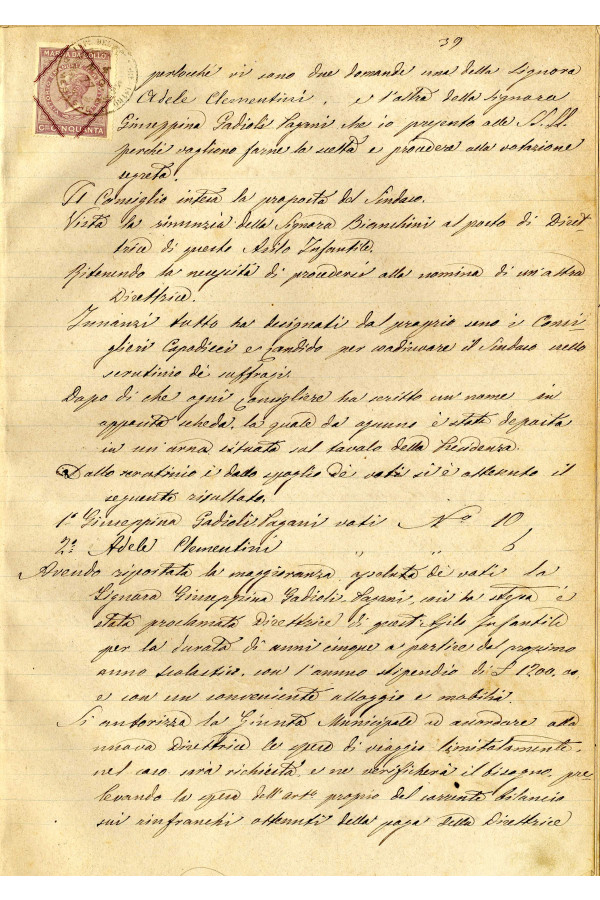 39
MARCA DA BOLLO
CINQUANTA
perlocchè vi sono due domande una della Signora
Adele Clementini, e l'altra della Signora
Giuseppina Gadioli Pagani che io presento alle S.S. L.L.
perchè vogliono farne la scelta e procedere alla votazione
segreta.
Il Consiglio intesa la proposta del Sindaco.
Vista la rinunzia della Signora Bianchini al posto di Diret-
trice di questo Asilo Infantile.
Ritenendo la necessità di procedersi alla nomina di un'altra
Direttrice.
Innanzi tutto ha designati dal proprio seno i Consi-
glieri Capodieci e Candido per coadiuvare il Sindaco nello
scrutinio dè suffragi.
Dopo di che ogni Consigliere ha scritto un nome in
apposita scheda, la quale da ognuno è stata deposta
in un'urna situata sul tavolo della Presidenza.
Dallo scrutinio e dallo spoglio dè voti si è ottenuto il
seguente risultato.
1ª Giuseppina Gadioli Pagani voti Nº 10
2ª Adele Clementini " " 6
Avendo riportata la maggioranza assoluta dè voti la
Signora Giuseppina Gadioli Pagani, così la stessa è
stata proclamata Direttrice di quest'Asilo Infantile
per la durata di anni cinque a partire dal prossimo
anno scolastico, con l'annuo stipendio di £ 1200,00
e con un conveniente alloggio e mobilià.
Si autorizza la Giunta Municipale ad accordare alla
nuova Direttrice le spese di viaggio limitatamente,
nel caso sarà richiesta, e ne verificherà il bisogno, pre-
levando la spesa dall'artº proprio del corrente bilancio
sui rinfranchi ottenuti della paga della Direttrice